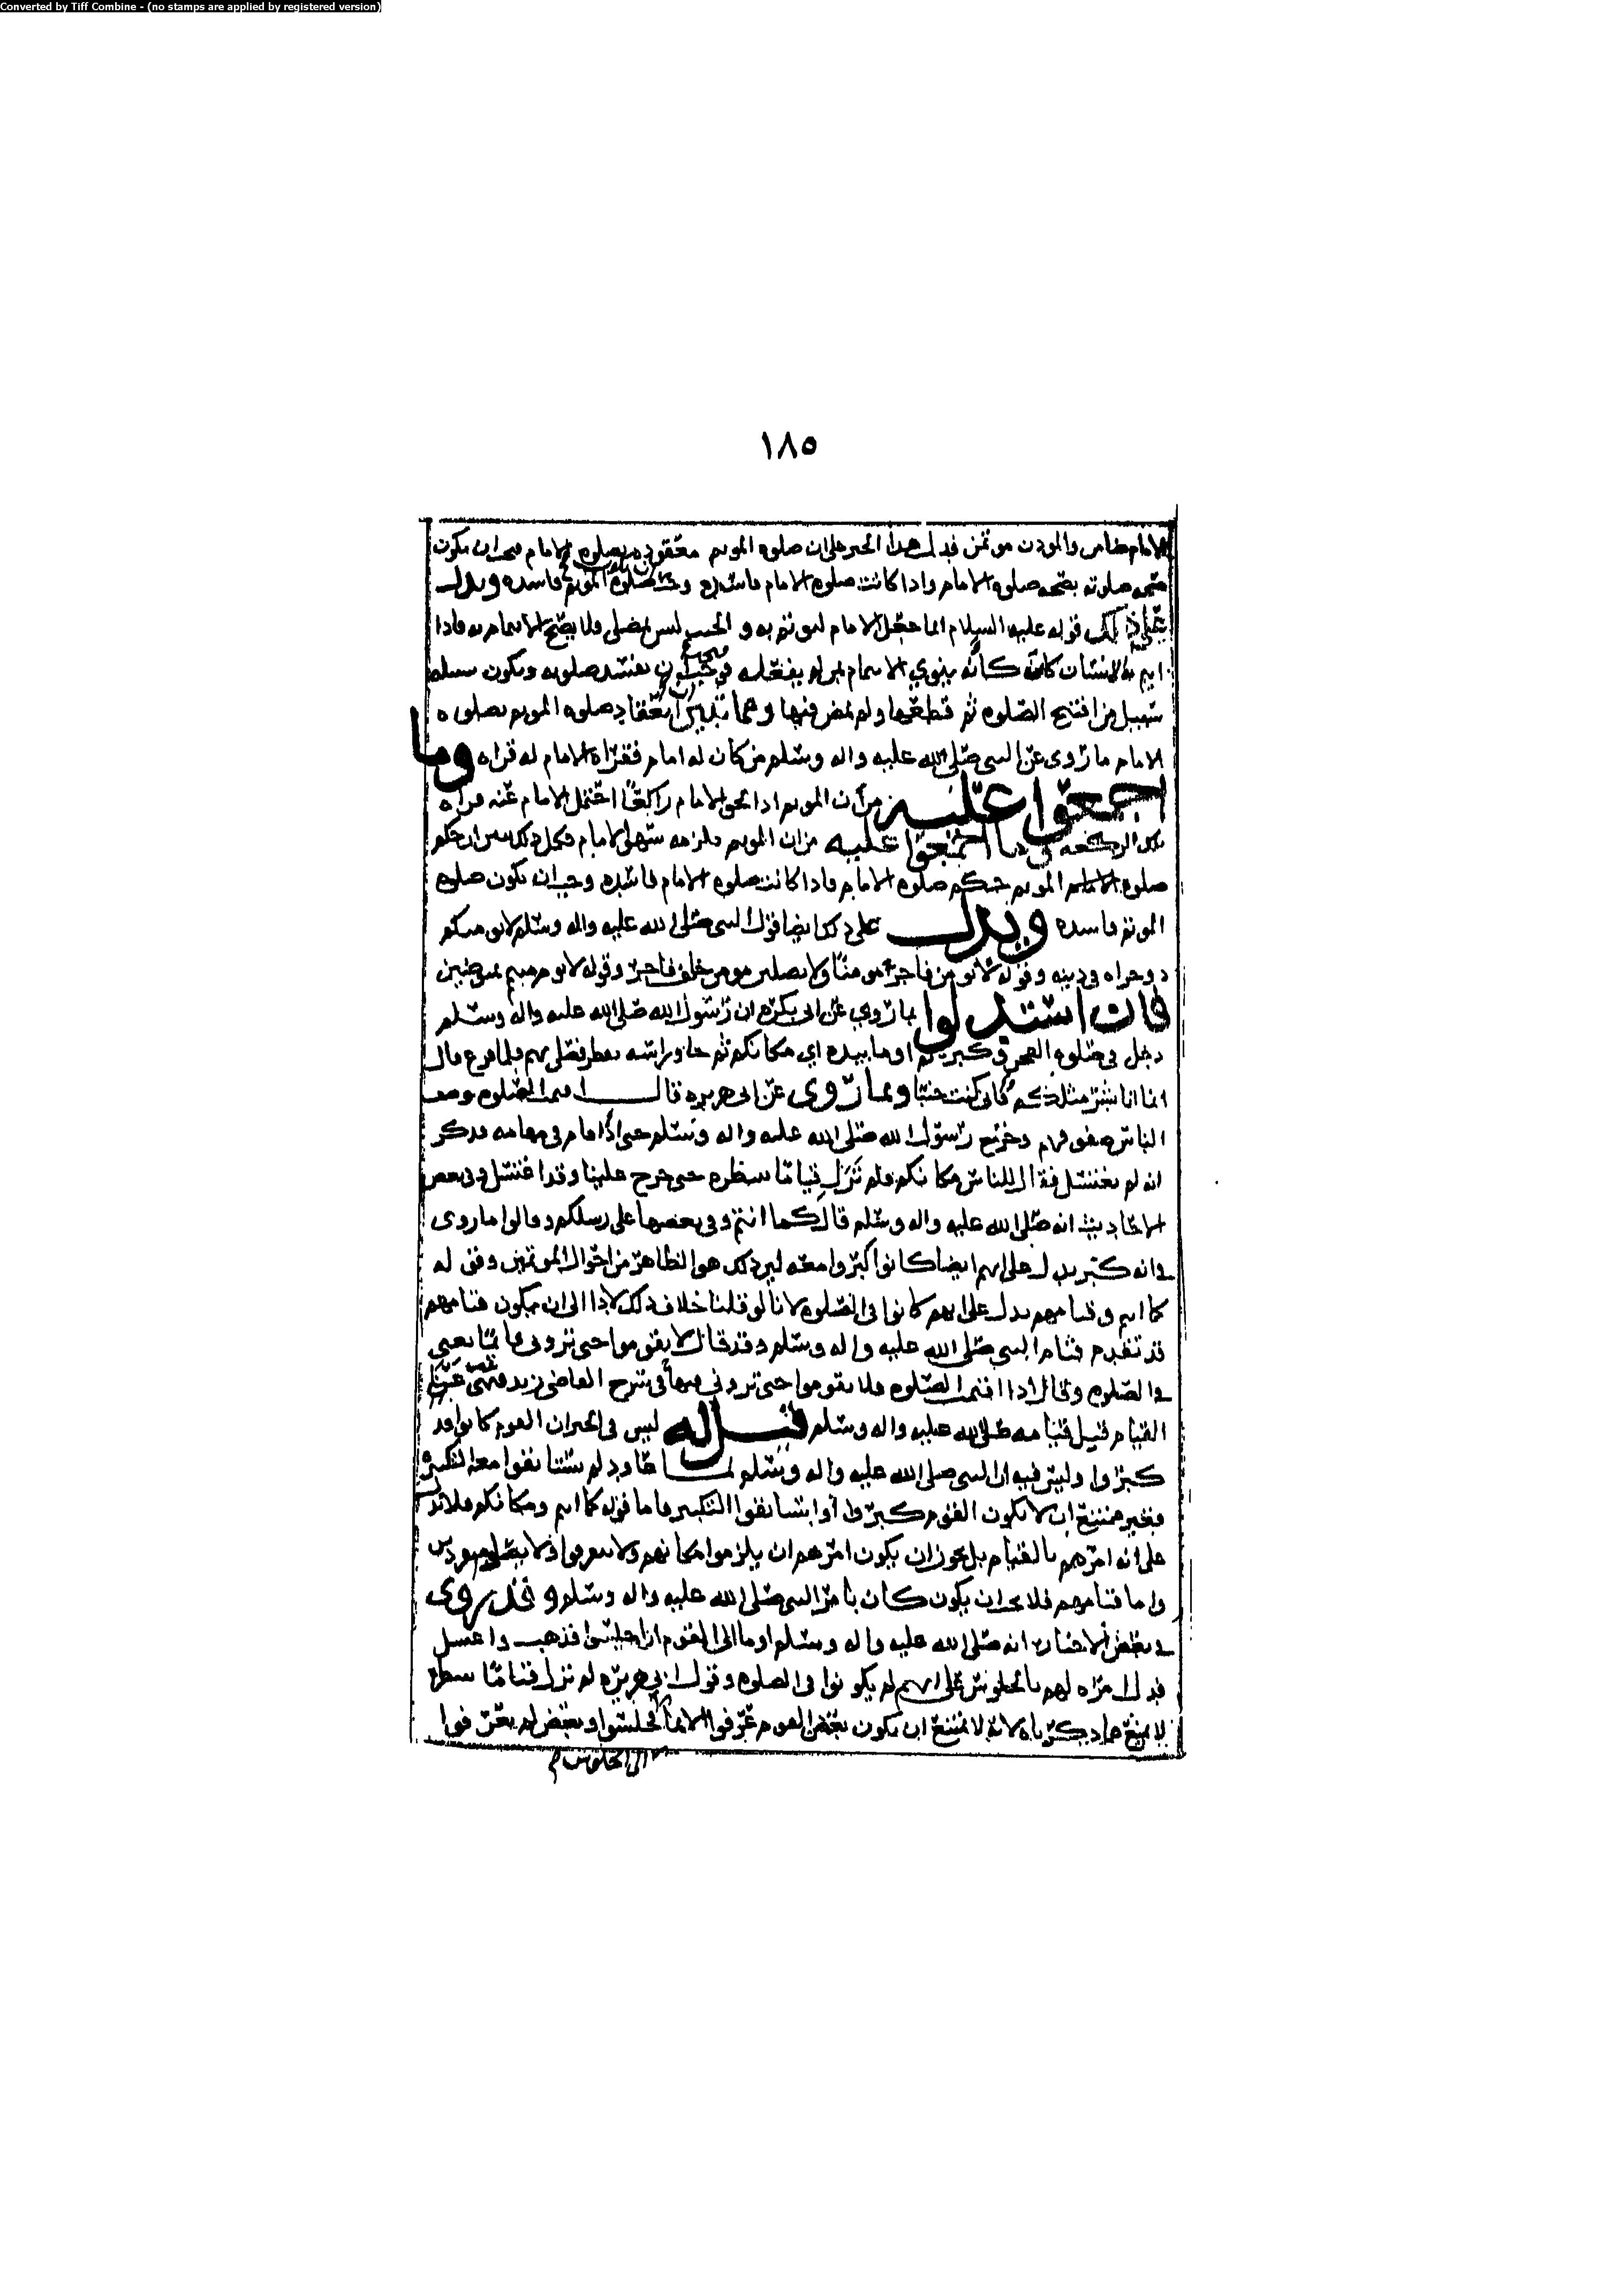 Converted by Tiff Combine - (no stamps are applied by registered version)
١٨٥
الامام ضامن والموذن موتمن فدل هدا الخبر على ان صلوه الموتم معقوده بصلوه الامام فيجب ان يكون
صحه صلوته بصحه صلوه الامام واذا كانت صلوه الامام فاسده وجب ان يكون صلوه الموتم فاسده ويدل
على ذلك قوله عليه السلام انما جعل الامام ليوتم به والجنب ليس بمصلي فلا يصح الايتمام به فاذا
ايتم به الانسان كان كانه ينوي الايتمام بمن لم يفعله فيجب ان يكون تفسد صلوته ويكون سبيله
سبيل من افتتح الصلوه ثم قطعها ولم يمض فيها ومما يبين انعقاد صلوه الموتم بصلوه
الامام ما روى عن النبي صلى الله عليه واله وسلم من كان له امام فقراه الامام له قراه وما
اجمعوا عليه من ان الموتم اذا لحق الامام راكعًا احتمل الامام عنه قراه
تلك الركعه وما اجمعوا عليه من ان الموتم يلزمه سهو الامام فكل ذلك يبين ان حكم
صلوه الموتم حكم صلوه الامام فاذا كانت صلوه الامام فاسده وجب ان يكون صلوه
الموتم فاسده ويدل على ذلك ايضا قول النبي صلى الله عليه واله وسلم لا يومنكم
ذو جراه في دينه وقوله لا يومن فاجر مومنًا ولا يصلين مومن خلف فاجر وقوله لا يوم متيمم متوضين
فان استدلوا بما روي عن ابي بكره ان رسول الله صلى الله عليه واله وسلم
دخل في صلوه الفجر فكبر ثم اوما بيده اي مكانكم ثم جا وراسه يقطر فصلى بهم فلما فرغ قال
انما انا بشر مثلكم واني كنت جنبًا وبما روى عن ابي هريره قال اقيمت الصلوه وصف
الناس صفوفهم وخرج رسول الله صلى الله عليه واله وسلم حتى اذا قام في مقامه ذكر
انه لم يغتسل فقال للناس مكانكم فلم نزل قيامًا ننتظره حتى خرج علينا وقد اغتسل وفي بعض
الاحاديث انه صلى الله عليه واله وسلم قال كما انتم وفي بعضها على رسلكم وقالوا ما روى
في انه كبر يدل على انهم ايضا كانوا كبروا معه لان ذلك هو الظاهر من احوال الموتمين وقوله
كما انتم وقيامهم يدل على انهم كانوا في الصلوه لانا لو قلنا خلاف ذلك لادا الى ان يكون قيامهم
قد تقدم قيام النبي صلى الله عليه واله وسلم وقد قال لا تقوموا حتى تروني قايمًا يعني
في الصلوه وقال اذا اقيمت الصلوه فلا تقوموا حتى تروني في شرح القاضي زيد فنهى عن
القيام قبل قيامه صلى الله عليه واله وسلم قيل له ليس في الخبر ان القوم كانوا قد
كبروا وليس فيه ان النبي صلى الله عليه واله وسلم لما عاود لم يستانفوا معه التكبير
فغير ممتنع ان لا يكون القوم كبروا او استانفوا التكبير فاما قوله كما انتم ومكانكم فلا يدل
على انه امرهم بالقيام بل يجوز ان يكون امرهم ان يلزموا مكانهم ولا يتفرقوا
واما قيامهم فلا يجب ان يكون كان بامر النبي صلى الله عليه واله وسلم وقد روى
في بعض الاخبار انه صلى الله عليه واله وسلم اوما الى القوم ان اجلسوا فذهب واغتسل
فدل امره لهم بالجلوس على انهم لم يكونوا في الصلوه وقول ابي هريره لم نزل قيامًا ننتظره
لا يمنع ما ذكرناه لانه لا يمتنع ان يكون بعض القوم عرفوا الايما فجلسوا وبعض لم يعرفوا
الى الجلوس